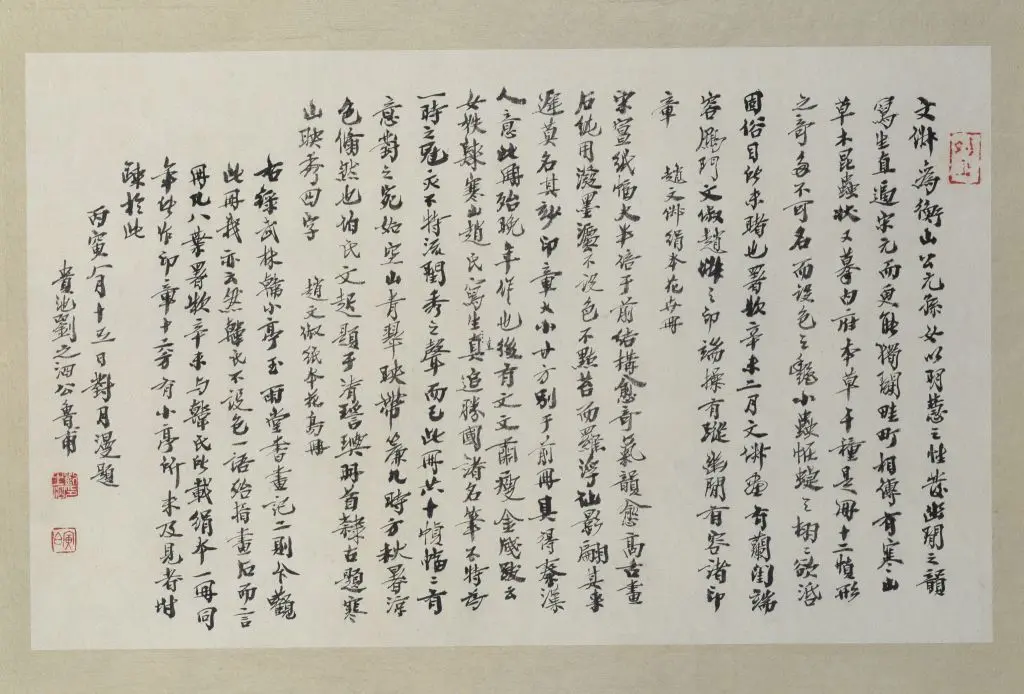 文俶為衡山公元孫女以明慧之性發幽閒之韻
寫生直逼宋元而更能獨闢畦町相傳有寒山
草木昆蟲狀又摹內府本草千種是冊十二幀形
之奇多不可名而設色之艷小蟲怪蜨之栩栩欲活
固俗目所未睹也署款辛未二月文俶產有蘭閨端
容雁門文俶趙俶之印端操有蹤幽閒有容諸印
章　趙文俶絹本花卉冊
宋宣紙幅大半倍于前結構愈奇氣韻愈高古畫
石純用潑墨瀋不設色不點苔而羅浮仙影翩其來
遲莫名其妙印章大小廿方別于前冊真得秦漢
人意此冊殆晚年作也後有文文肅瘦金牋跋云
女姪隸寒山趙氏寫生真追勝國諸名筆不特為
一時之冠亦不特流閨秀之聲而已此冊共十幀幅幅有
意對之宛如空山青翠映帶簾几時方秋暑涼
色翛然也伯氏文起題于清瑤璵明首隸古題寒
山映秀四字　趙文俶紙本花鳥冊
右錄武林韓小亭玉雨堂書畫記二則今觀
此冊我亦云然韓氏不設色一語殆指畫石而言
冊凡八葉署款辛未與韓氏所載絹本一冊同
年所作印章十二方有小亭所未及見者坿
疎於此
丙寅八月十五日對月漫題
貴池劉之泗公魯甫